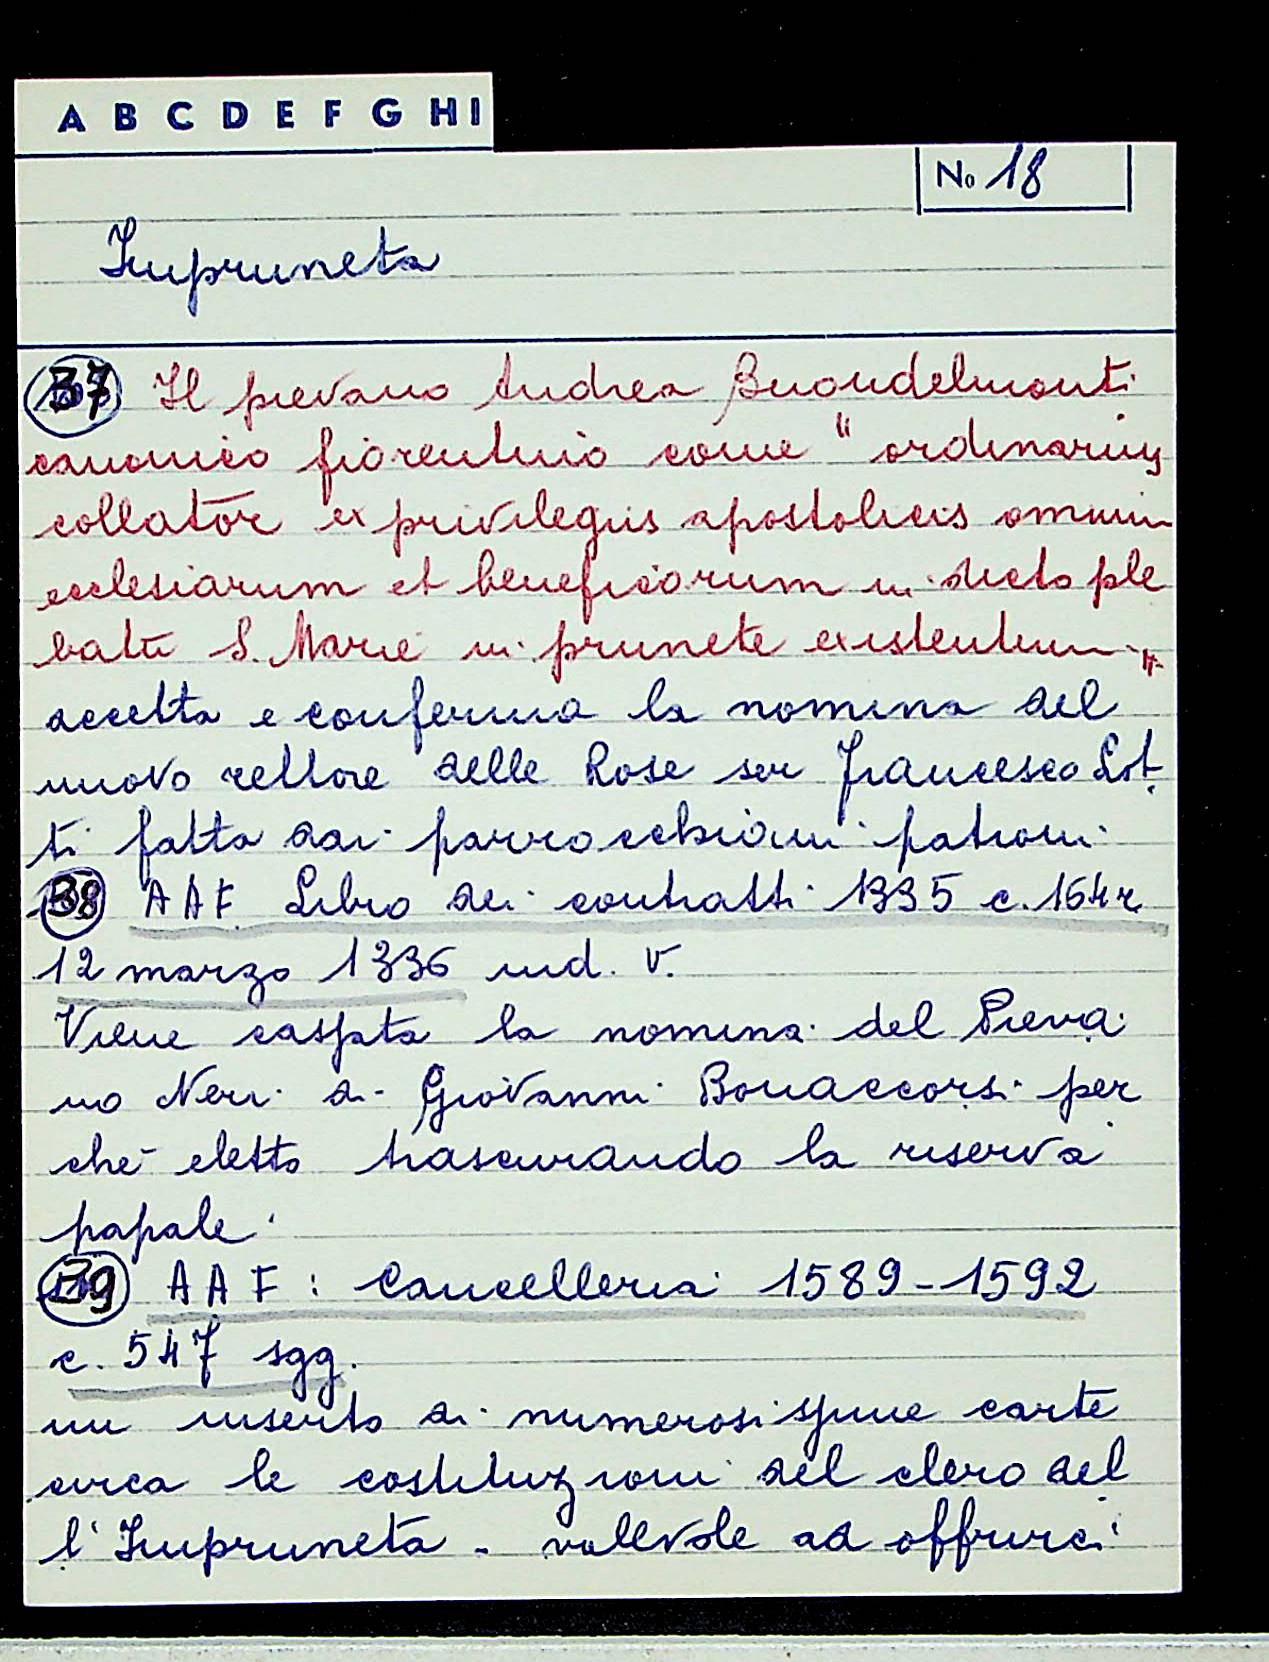 A B C D E F G H I
No 18
Impruneta
37 Il pievano Andrea Buondelmonti
canonico fiorentino come "ordinarius
collator ex privilegiis apostolicis omnium
ecclesiarum et beneficiorum in dicto ple
batu S. Marie in prunete existentium"
accetta e conferma la nomina del
nuovo rettore delle Rose ser Francesco Lot
ti fatta dai parrocchiani patroni
38 AAF Libro dei contratti 1335 c. 164r
12 marzo 1336 ind. V.
Viene cassata la nomina del Pieva
no Neri di Giovanni Bonaccorsi per
ché eletto trascurando la riserva
papale.
39 AAF: Cancelleria 1589-1592
c. 547 sgg.
un inserto di numerosissime carte
circa le costituzioni del clero del
l'Impruneta - valevole ad offrirci